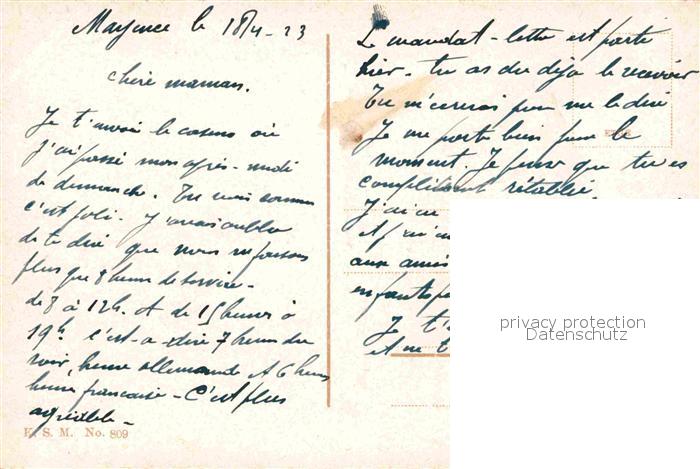 Mayence le 18/4-23
Chère maman.
Je t'envoie le casino où
j'ai passé mon après-midi
de dimanche. Tu vois comme
c'est joli. J'avais oublié
de te dire que nous ne faisons
plus que 8 heures de service-
de 8 à 12h. et de 15 heures à
19h c'est-a-dire 7 heures du
soir, heure allemande et 6 heures
heure française - C'est plus
agréable-
K. S. M. No. 809
La mandat-lettre est partie
hier. tu as du déja le recevoir
Tu m'écrirais pour me le dire
Je me porte bien pour le
moment. Je pense que tu es
complètement rétablie.
J'ai
aux amis
enfants
Je t'
et ne t
privacy protection
Datenschutz